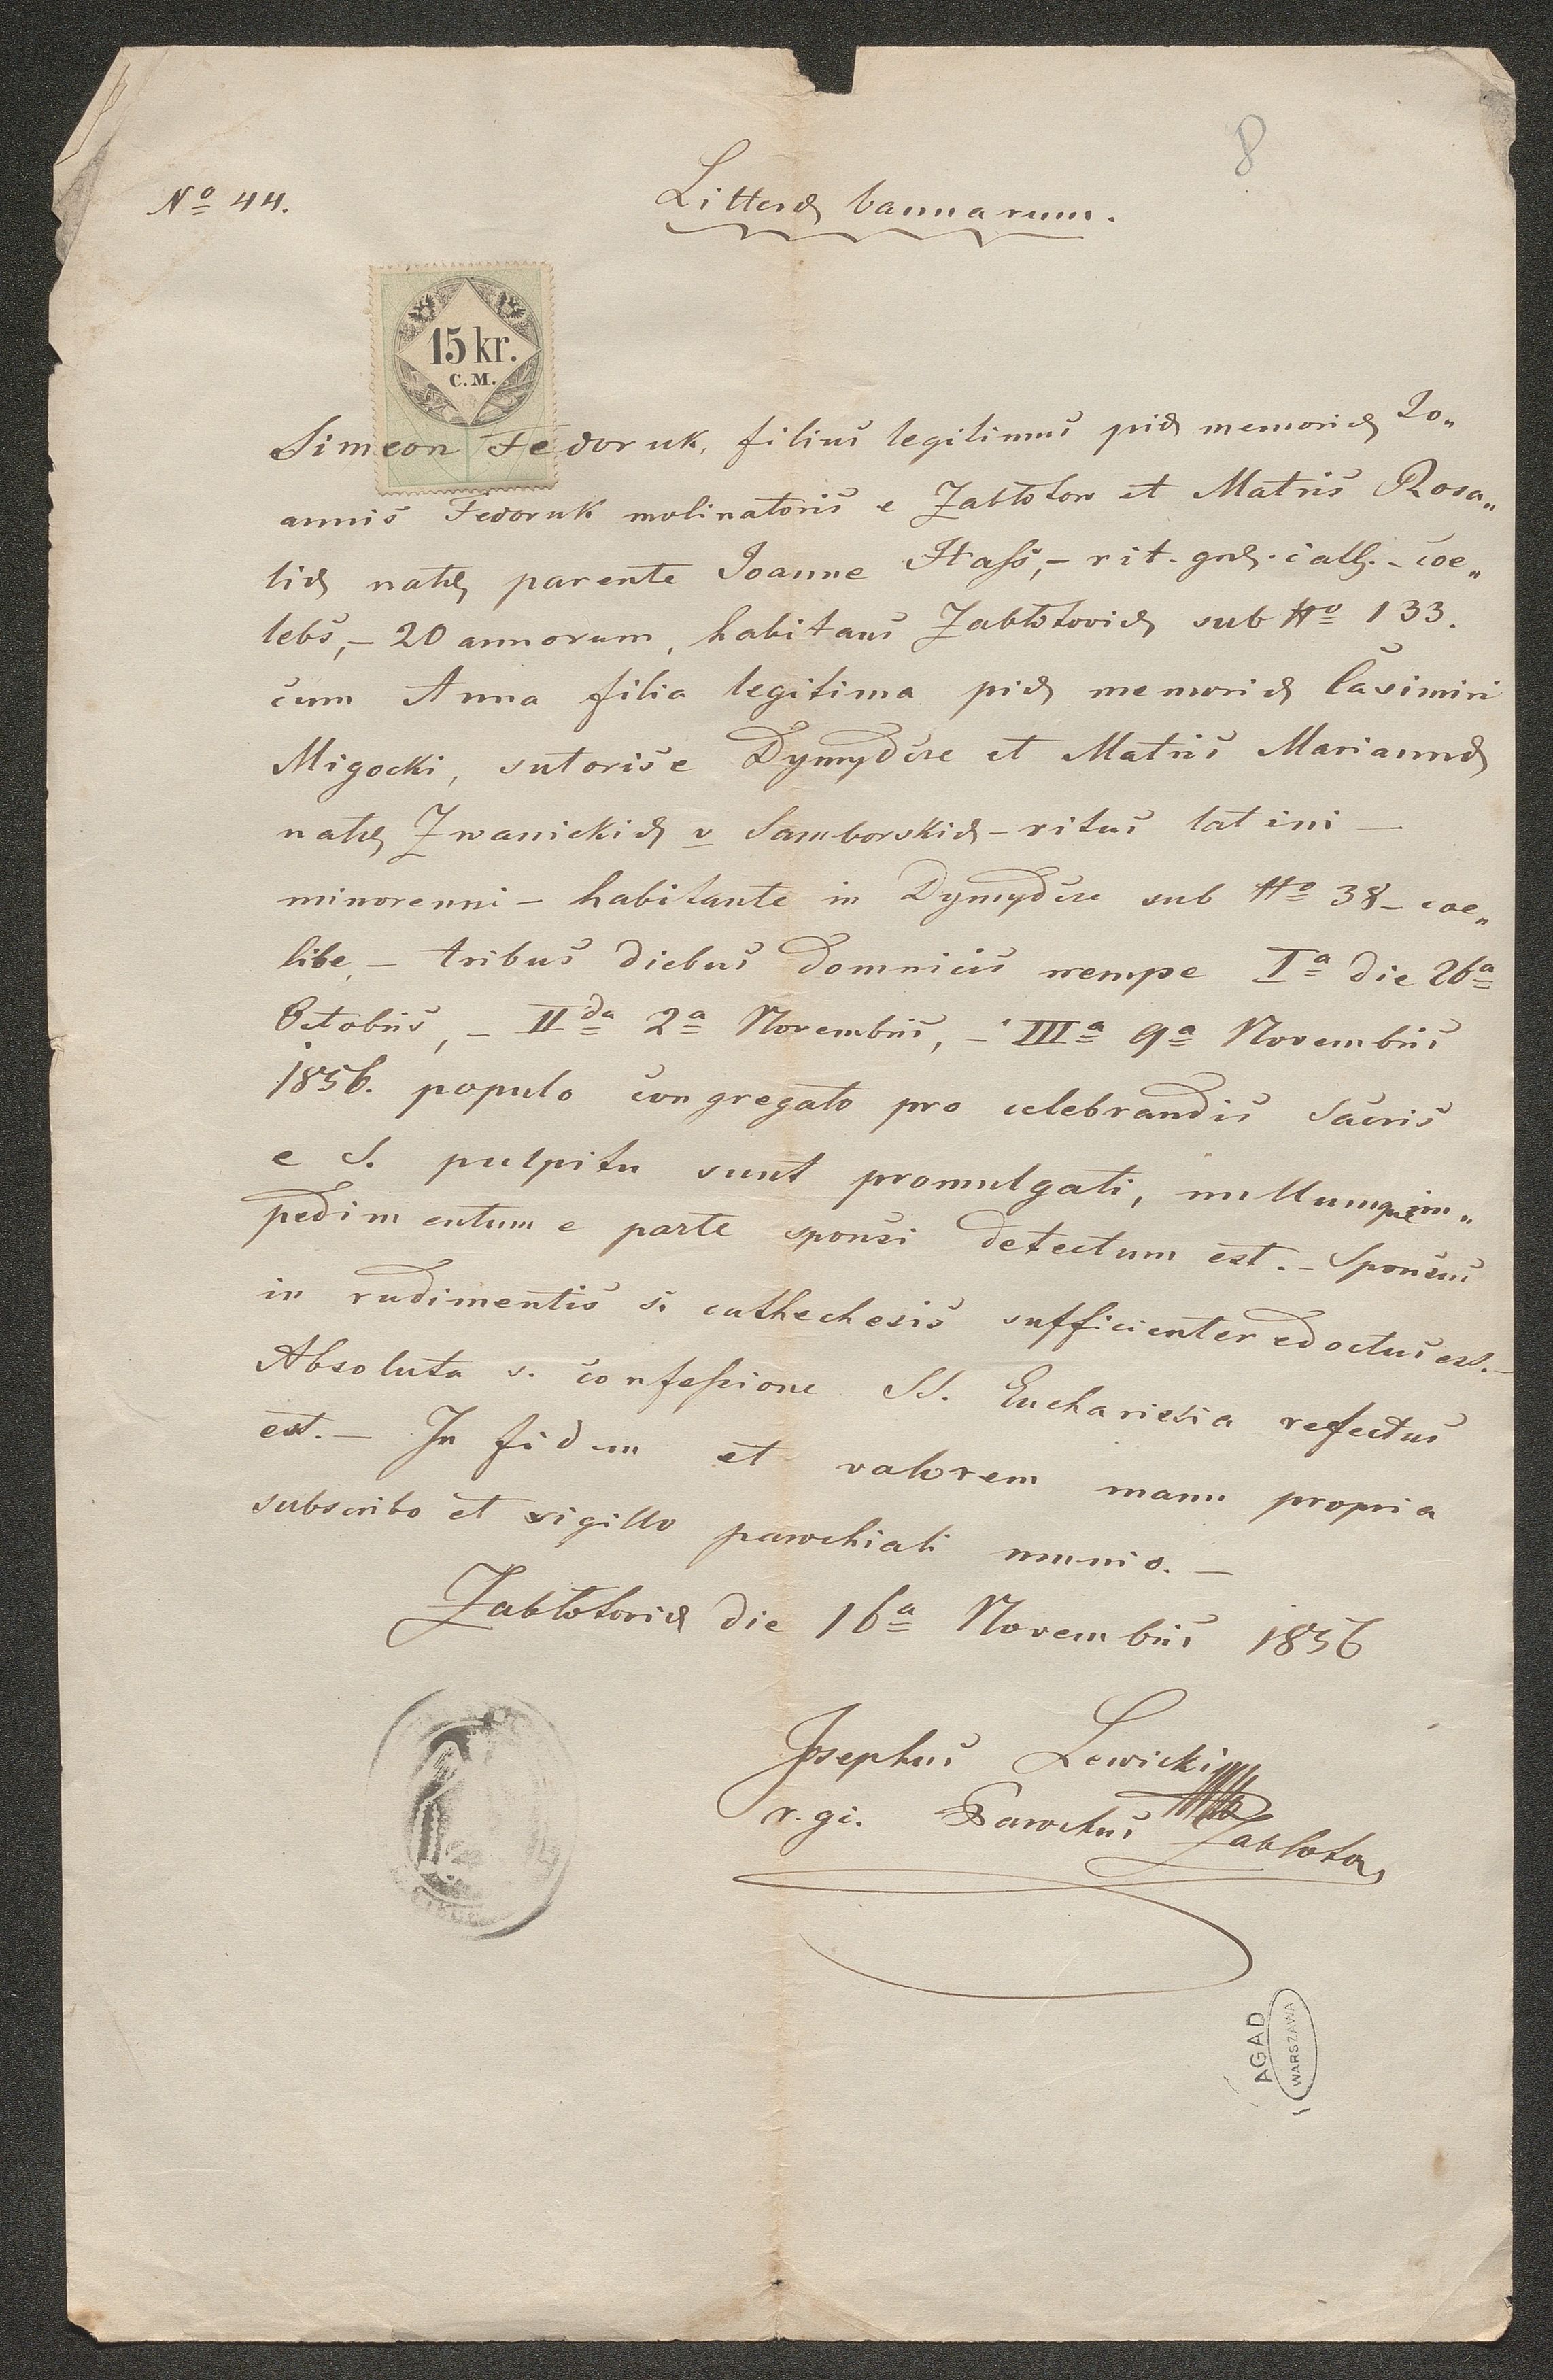 8
Nº 44.
Litteræ bannarum.
15 kr.
C.M.
Simeon Fedoruk, filius legitimus piæ memoriæ Jo„
annis Fedoruk molinatoris e Zabłotow et Matris Rosa„
liæ natæ parente Joanne Hass,- rit. græ. cath. - coe„
lebs, - 20 annorum, habitans Zabłotoviæ sub Nº 133.
cum Anna filia legitima piæ memoriæ Casimiri
Migocki, sutoris e Dymydcze et Matris Mariannæ
natæ Zwanickiæ v Samborskiæ - ritus latini -
minorenni - habitante in Dymydcze sub Nº 38 - coe„
libe, - tribus diebus domnicis nempe Iª die 26ª
8ctobris, - IIda 2ª Novembris, - IIIª 9ª Novembris
1856. populo congregato pro celebrandis Sacris
e S. pulpitu sunt promulgati, nullumque im„
pedimentum e parte sponsi detectum est. - Sponsus
in rudimentis s. cathechesis sufficienter edoctus est. -
Absoluta s. confessione SS. Eucharistia refectus
est. - In fidem et valorem manu propria
subscribo et sigillo parochiali munio. -
Zabłotoviæ die 16ª Novembris 1856
Josephus Lewicki
r. gc. Parochus Zablotov
AGAD
WARSZAWA